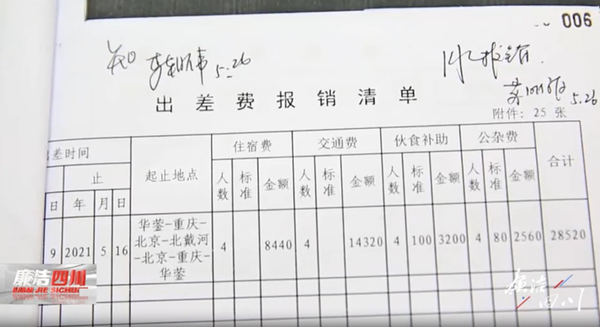 006
5.26
5.26
出差费报销清单
附件: 25 张
出差时间 起止地点 住宿费 交通费 伙食补助 公杂费 合计
止
日 年 月 日 人数 标准 金额 人数 标准 金额 人数 标准 金额 人数 标准 金额
9 2021 5 16 华蓥-重庆- 4 8440 4 14320 4 100 3200 4 80 2560 28520
北京-北戴河
-北京-重庆-
华蓥
廉洁四川
LIANJIE SICHUAN
廉洁四川